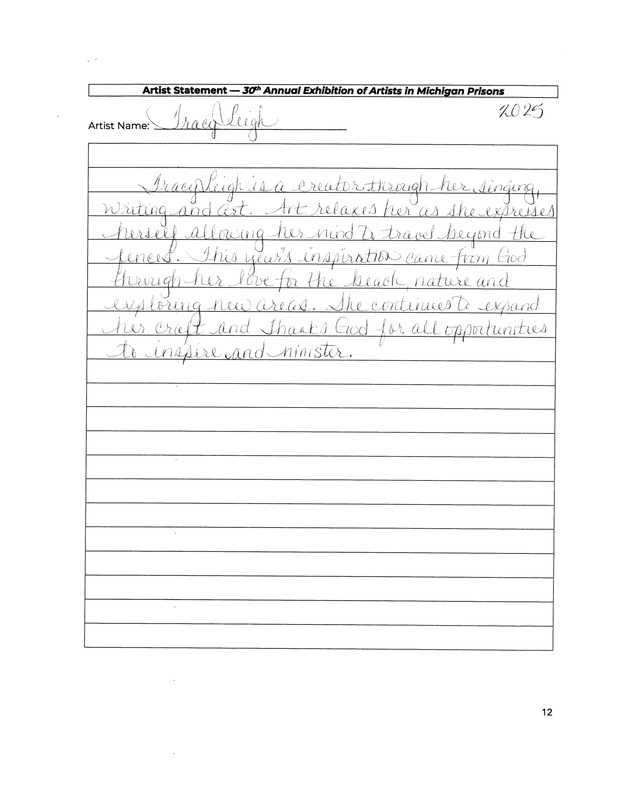 Artist Statement — 30th Annual Exhibition of Artists in Michigan Prisons
2025
Artist Name: TracyLeigh
TracyLeigh is a creator through her singing,
writing and art. Art relaxes her as she expresses
herself allowing her mind to travel beyond the
fences. This year's inspiration came from God
through her love for the beach, nature and
exploring new areas. She continues to expand
her craft and thanks God for all opportunities
to inspire and minister.
12